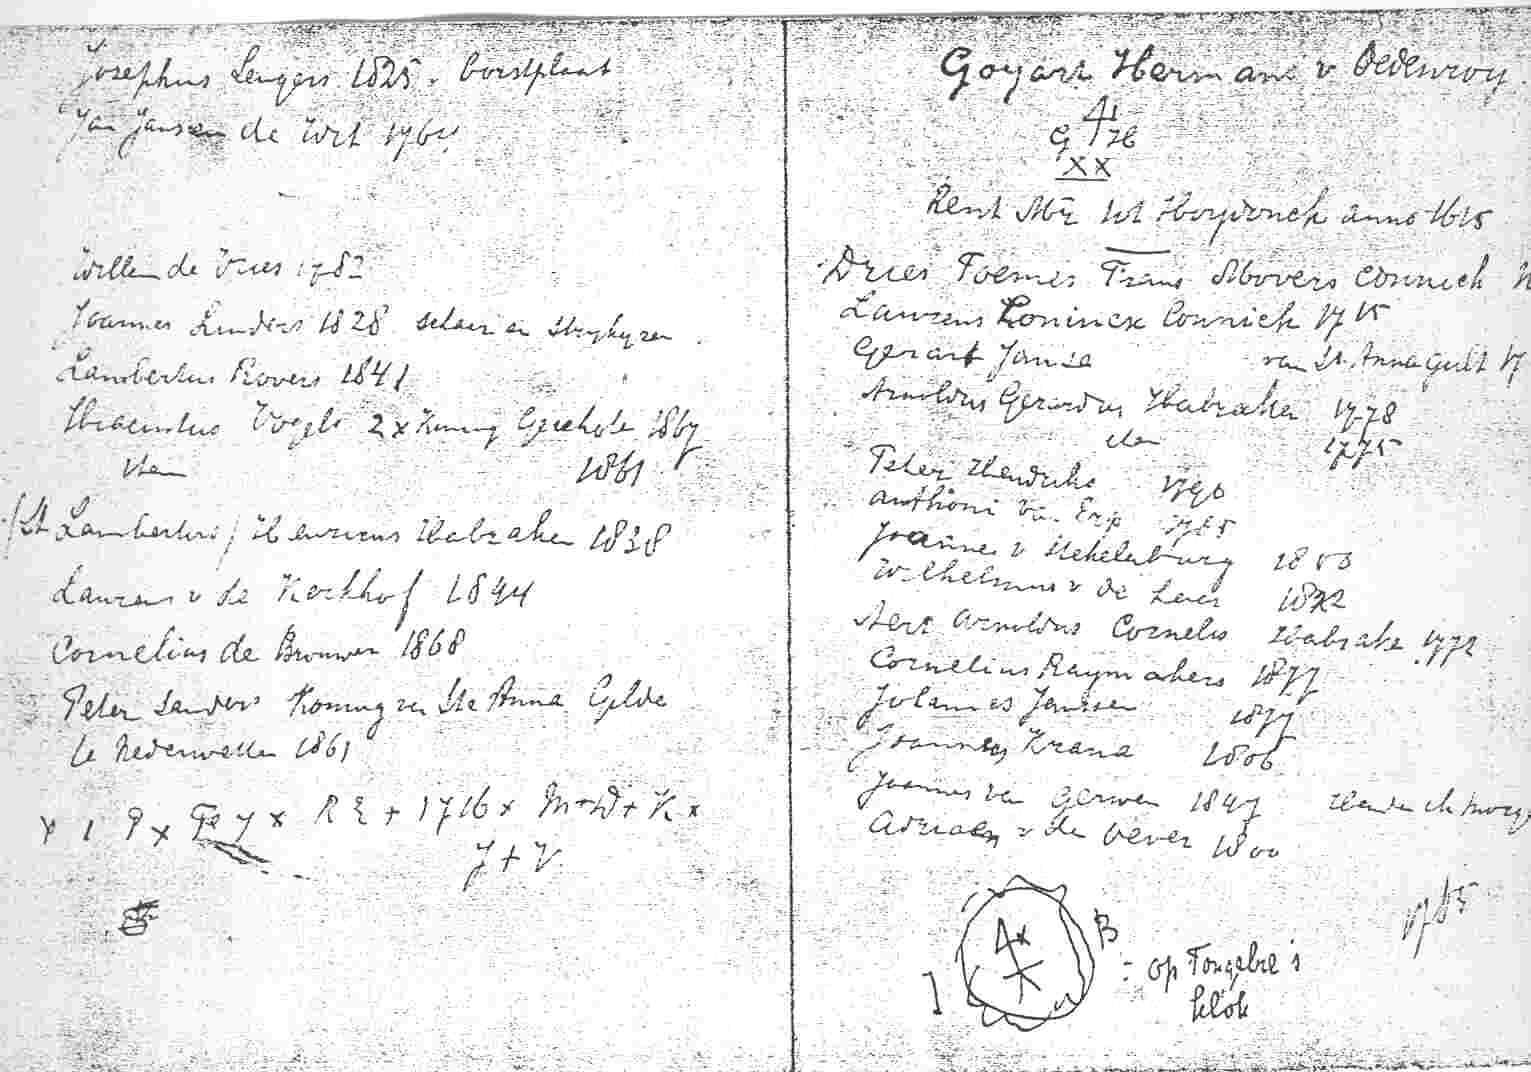 Josephus Lengers 1825. borstplaat
Jan Jansen de Wit 1764
Willem de Vries 1782
Joannes Linders 1828
Lambertus Rovers 1841
Vogels 2x Koning 1867
Item 1861
/St Lambertus/ Henricus Habraken 1838
Laurens v de Kerkhof 1844
Cornelius de Brouwer 1868
Peter Sanders Koning van Ste Anna Gilde
te Nederwetten 1861
x 1 P x x R + 1716 x M + D + K x
J + V
Goyart Hermans v
G H
XX
Rent Mr tot anno 1615
Dries Toemes Frans Movers connick
Laurens Coninck 1715
Gerart Janse van St. Anna Guilt 17
Arnoldus Gerardus Habraken 1778
item 1775
Peter Hendriks 1790
Anthoni va. Erp 1785
Joannes v Stekelenburg 1800
Wilhelmus v de Laer
Aert Arnoldus Cornelis Habrake 1772
Cornelius Raymakers 1877
Johannes Janssen 1877
Joannes Krana 1806
Joannes van Gerwen 1847
Adriaen v de Oever 1800
1785
B
: op Tongelre's
klok